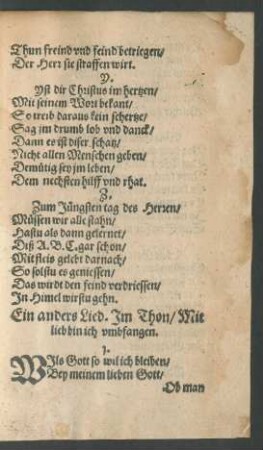 Thun freind vnd feind betriegen/
Der Herr sie straffen wirt.
Y.
Yst dir Christus im hertzen/
Mit seinem Wort bekant/
So treib daraus kein schertze/
Sag im drumb lob vnd danck/
Dann es ist diser schatz/
Nicht allen Menschen geben/
Demütig sey im leben/
Dem nechsten hilff vnd rhat.
Z.
Zum Jüngsten tag des Herren/
Müssen wir alle stahn/
Hastu als dann gelernet/
Diß A.B.C. gar schon/
Mit fleis gelebt darnach/
So solstu es geniessen/
Das wirdt den feind verdriessen/
In Himel wirstu gehn.
Ein anders Lied. Im Thon/ Mit
lieb bin ich vmbfangen.
1.
WJls Gott so wil ich bleiben/
Bey meinem lieben Gott/
Ob man